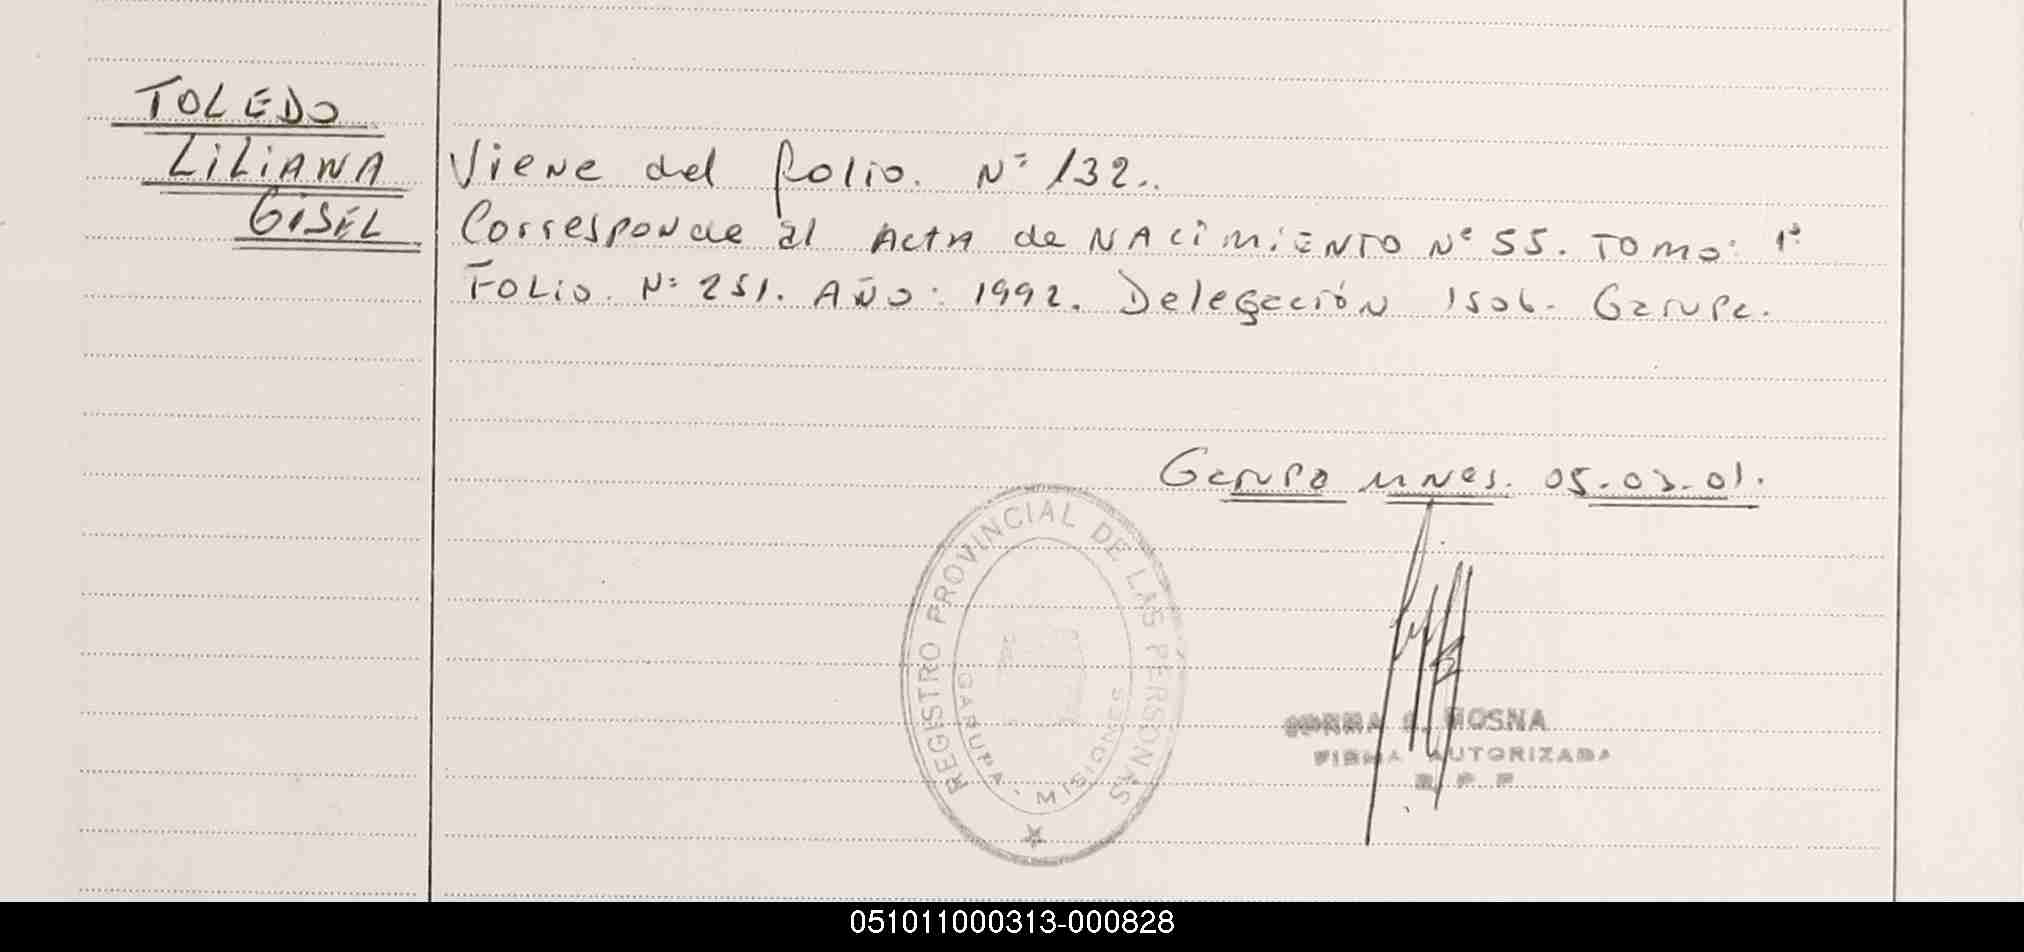 TOLEDO
LILIANA
GISEL
Viene del folio. Nº 132..
Corresponde al Acta de NACIMIENTO Nº 55. TOMO: 1º
FOLIO. Nº 251. AÑO: 1992. Delegación 1506. Garupa.
Garupa Mnes. 05-03-01.
REGISTRO PROVINCIAL DE LAS PERSONAS
GARUPA - MISIONES
MOSNA
FIRMA AUTORIZADA
051011000313-000828